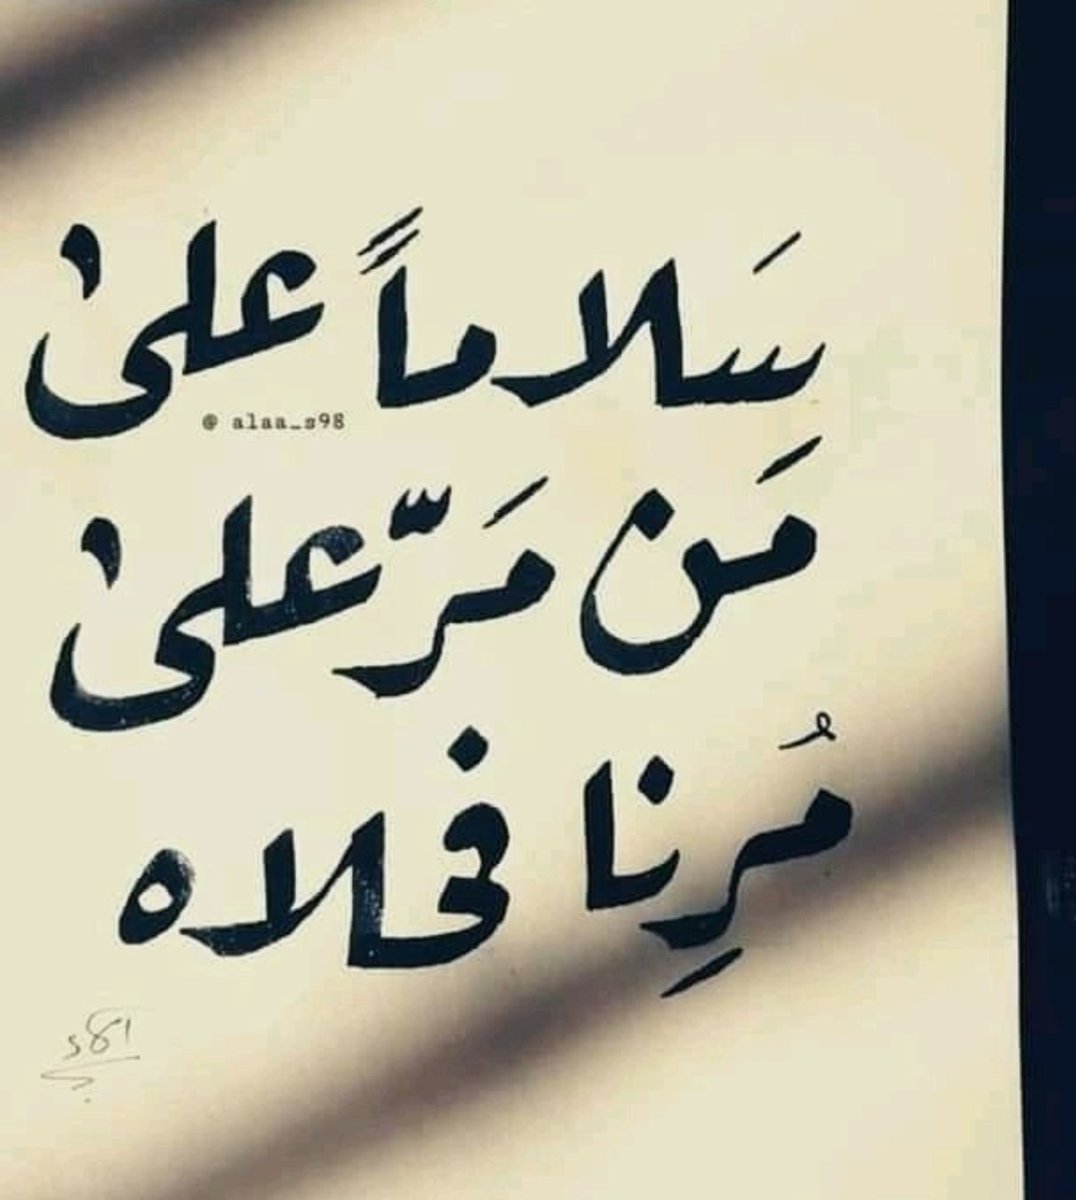 سَلاماً علىٰ
@ alaa_s98
مَن مَرّ علىٰ
مُرِنا فحلاه